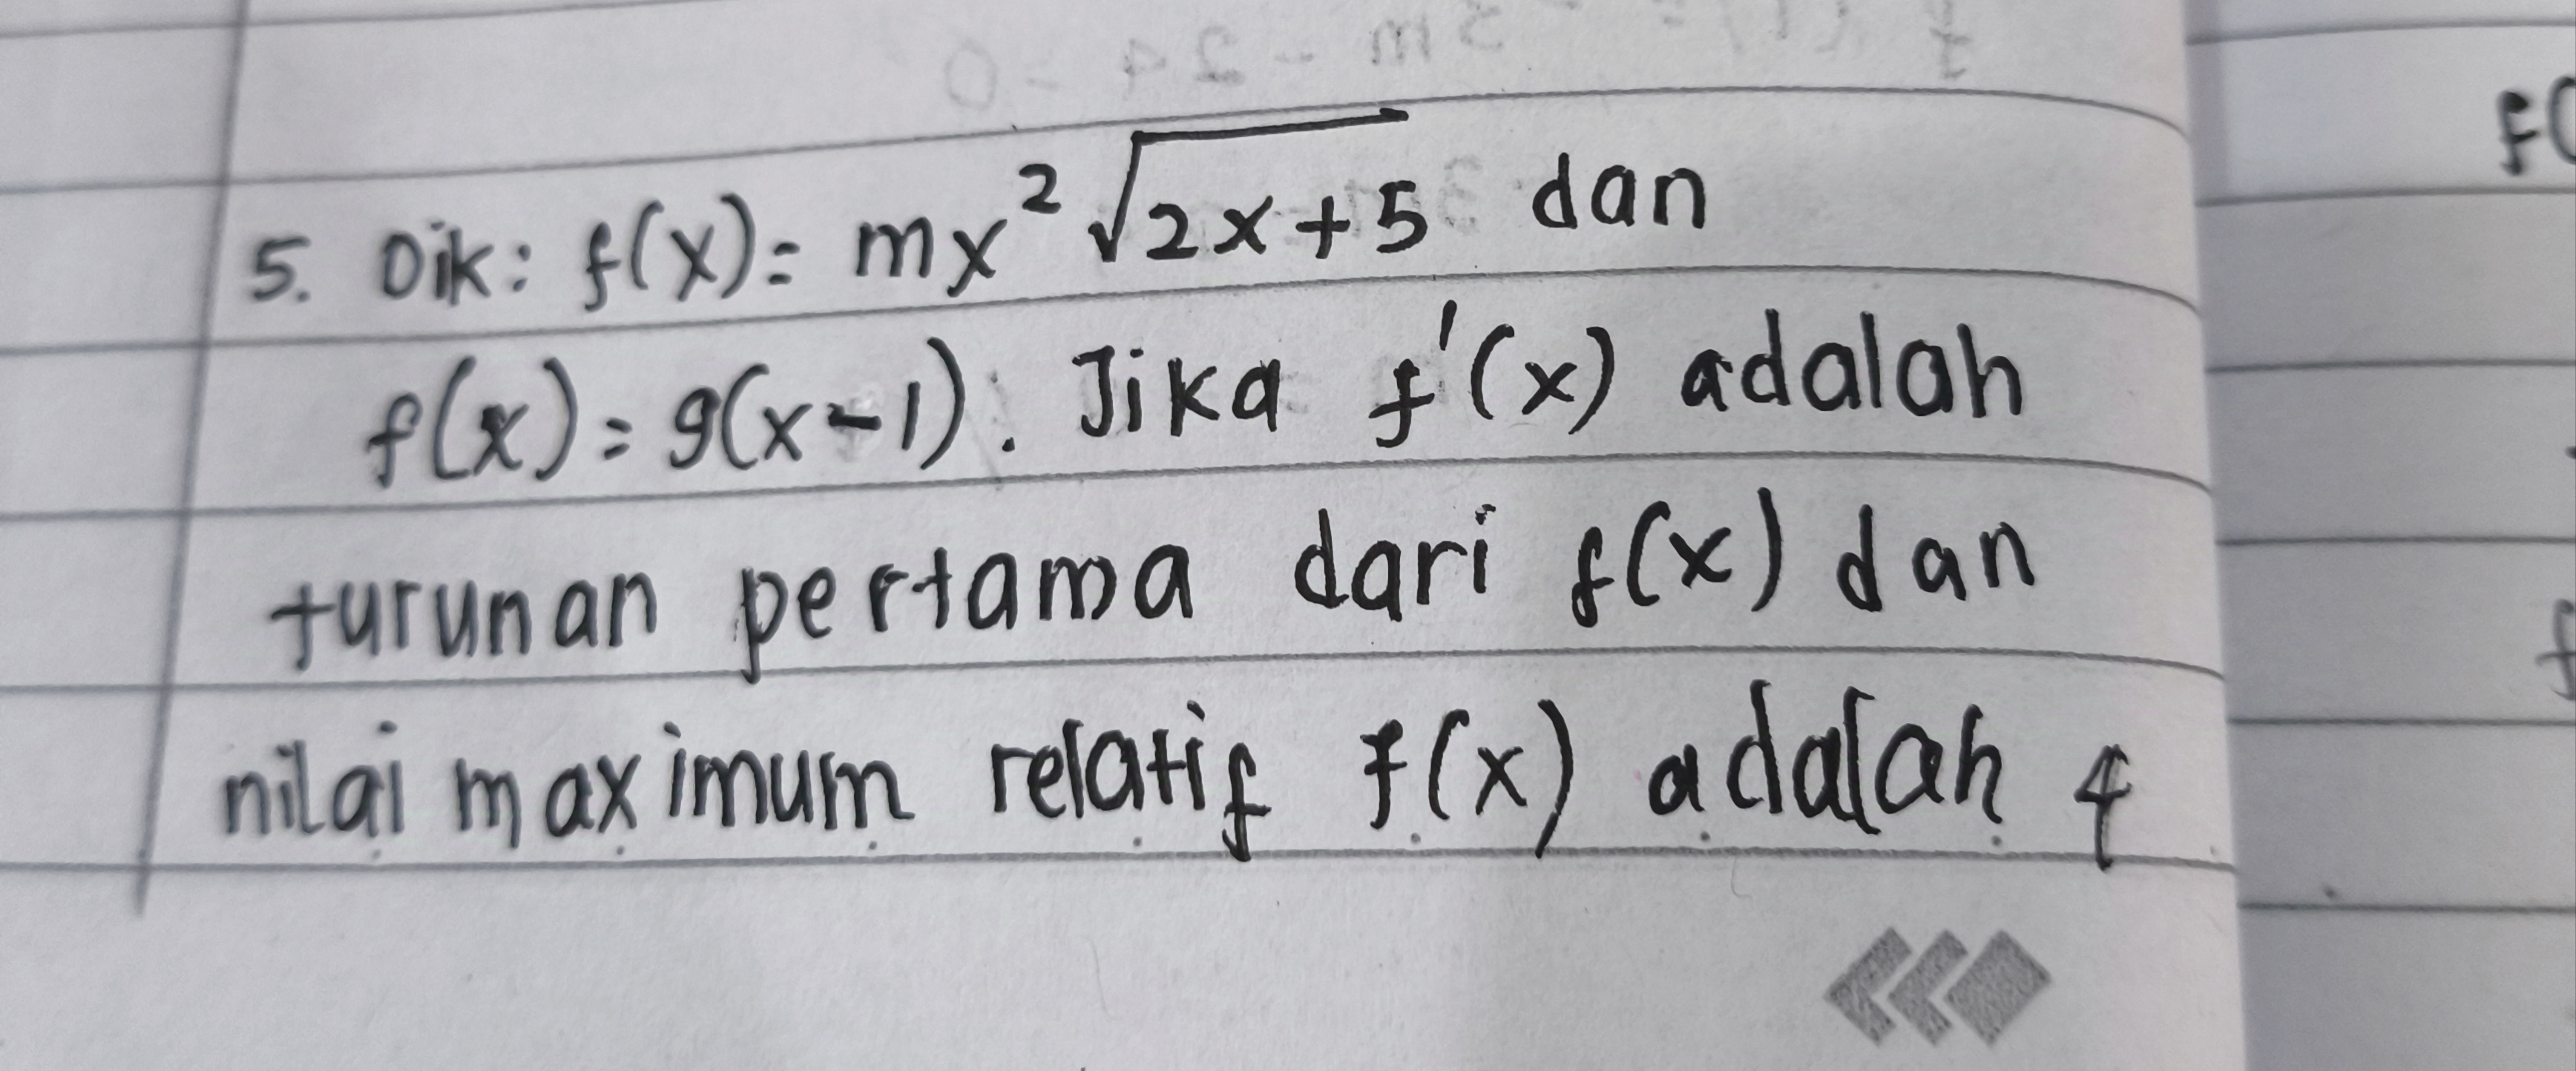 5. Dik: f(x) = mx²√2x+5 dan
f(x) = g(x-1). Jika f'(x) adalah
turunan pertama dari f(x) dan
nilai maximum relatif f(x) adalah 4